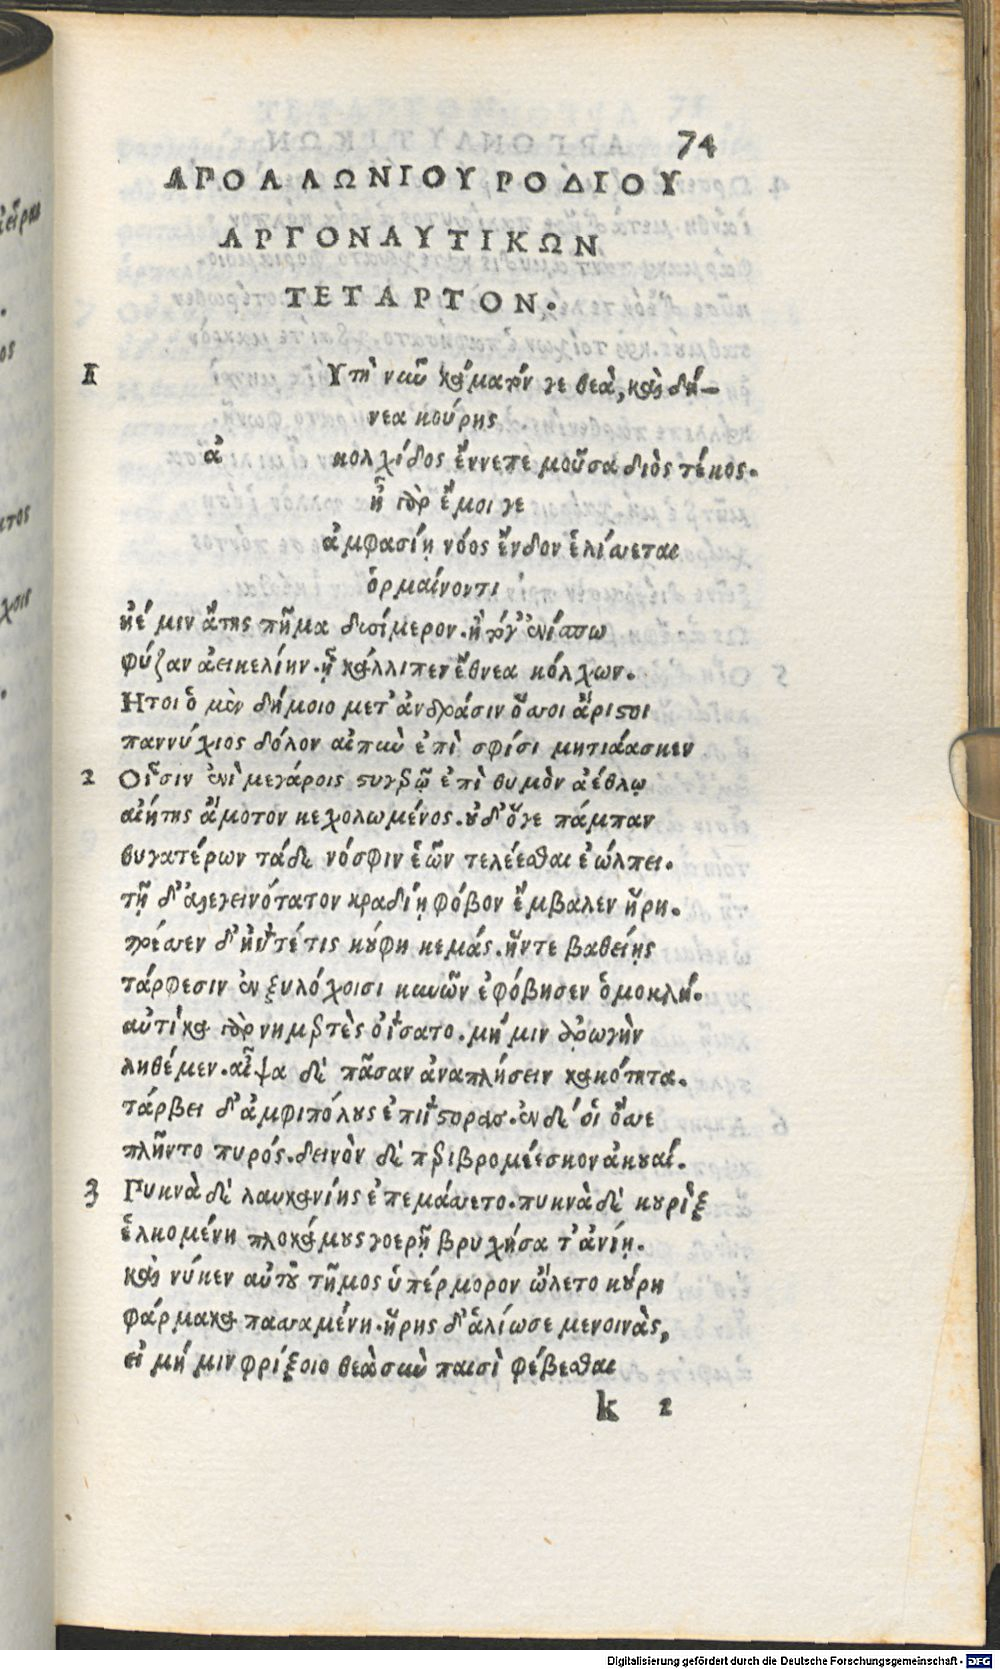 74
ΑΠΟΛΛΩΝΙΟΥ ΡΟΔΙΟΥ
ΑΡΓΟΝΑΥΤΙΚΩΝ
ΤΕΤΑΡΤΟΝ.
1 Υτὴ νῦν κάματόν γε θεὰ, καὶ δή-
νεα κούρης
ἀ κολχίδος ἔννεπε μοῦσα διὸς τέκος.
ἦ γὰρ ἔμοιγε
ἀμφασίῃ νόος ἔνδον ἑλίσσεται
ὁρμαίνοντι
ἠέ μιν ἄτης πῆμα δυσίμερον. ἢ τόγ' ἐνίσπω
φύζαν ἀεικελίην. ᾗ κάλλιπεν ἔθνεα κόλχων.
Ητοι ὁ μὲν δήμοιο μετ' ἀνδράσιν ὅσσοι ἄριστοι
παννύχιος δόλον αἰπὺν ἐπὶ σφίσι μητιάασκεν
2 Οἷσιν ἐνὶ μεγάροις στυγερῷ ἐπὶ θυμὸν ἀέθλῳ
αἰήτης ἄμοτον κεχολωμένος. οὐδ' ὅγε πάμπαν
θυγατέρων τάδε νόσφιν ἑῶν τελέεσθαι ἐώλπει.
τῇ δ' ἀλεγεινότατον κραδίῃ φόβον ἔμβαλεν ἥρη.
τρέσσεν δ' ἠΰτέ τις κούφη κεμάς. ἥντε βαθείης
τάρφεσιν ἐν ξυλόχοισι κυνῶν ἐφόβησεν ὁμοκλή.
αὐτίκα γὰρ νημερτὲς ὀΐσατο. μή μιν ἀρωγὴν
ληθέμεν. αἶψα δὲ πᾶσαν ἀναπλήσειν κακότητα.
τάρβει δ' ἀμφιπόλους ἐπιΐστορας. ἐν δέ οἱ ὄσσε
πλῆντο πυρός. δεινὸν δὲ περιβρομέεσκον ἀκουαί.
3 Πυκνὰ δὲ λαυκανίης ἐπεμάσσετο. πυκνὰ δὲ κουρὶξ
ἑλκομένη πλοκάμους γοερῇ βρυχήσατ' ἀνίῃ.
καί νύκεν αὐτοῦ τῆμος ὑπέρμορον ὤλετο κούρη
φάρμακα πασσαμένη. ἥρης δ' ἁλίωσε μενοινὰς,
εἰ μή μιν φρίξοιο θεὰ σὺν παισὶ φέβεσθαι
k 2
Digitalisierung gefördert durch die Deutsche Forschungsgemeinschaft - DFG